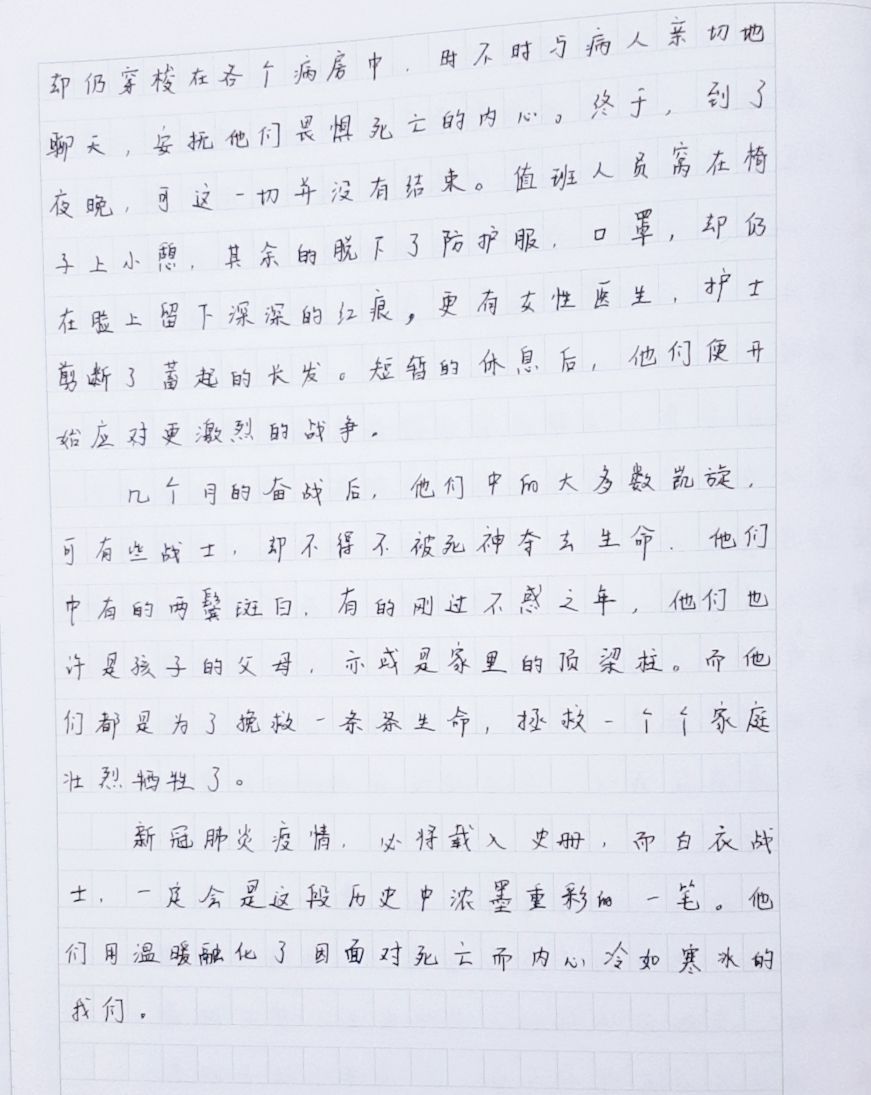 却仍穿梭在各个病房中，时不时与病人亲切地
聊天，安抚他们畏惧死亡的内心。终于，到了
夜晚，可这一切并没有结束。值班人员窝在椅
子上小憩，其余的脱下了防护服，口罩，却仍
在脸上留下深深的红痕，更有女性医生，护士
剪断了蓄起的长发。短暂的休息后，他们便开
始应对更激烈的战争。
几个月的奋战后，他们中的大多数凯旋，
可有些战士，却不得不被死神夺去生命，他们
中有的两鬓斑白，有的刚过不惑之年，他们也
许是孩子的父母，亦或是家里的顶梁柱。而他
们都是为了挽救一条条生命，拯救一个个家庭
壮烈牺牲了。
新冠肺炎疫情，必将载入史册，而白衣战
士，一定会是这段历史中浓墨重彩的一笔。他
们用温暖融化了因面对死亡而内心冷如寒冰的
我们。